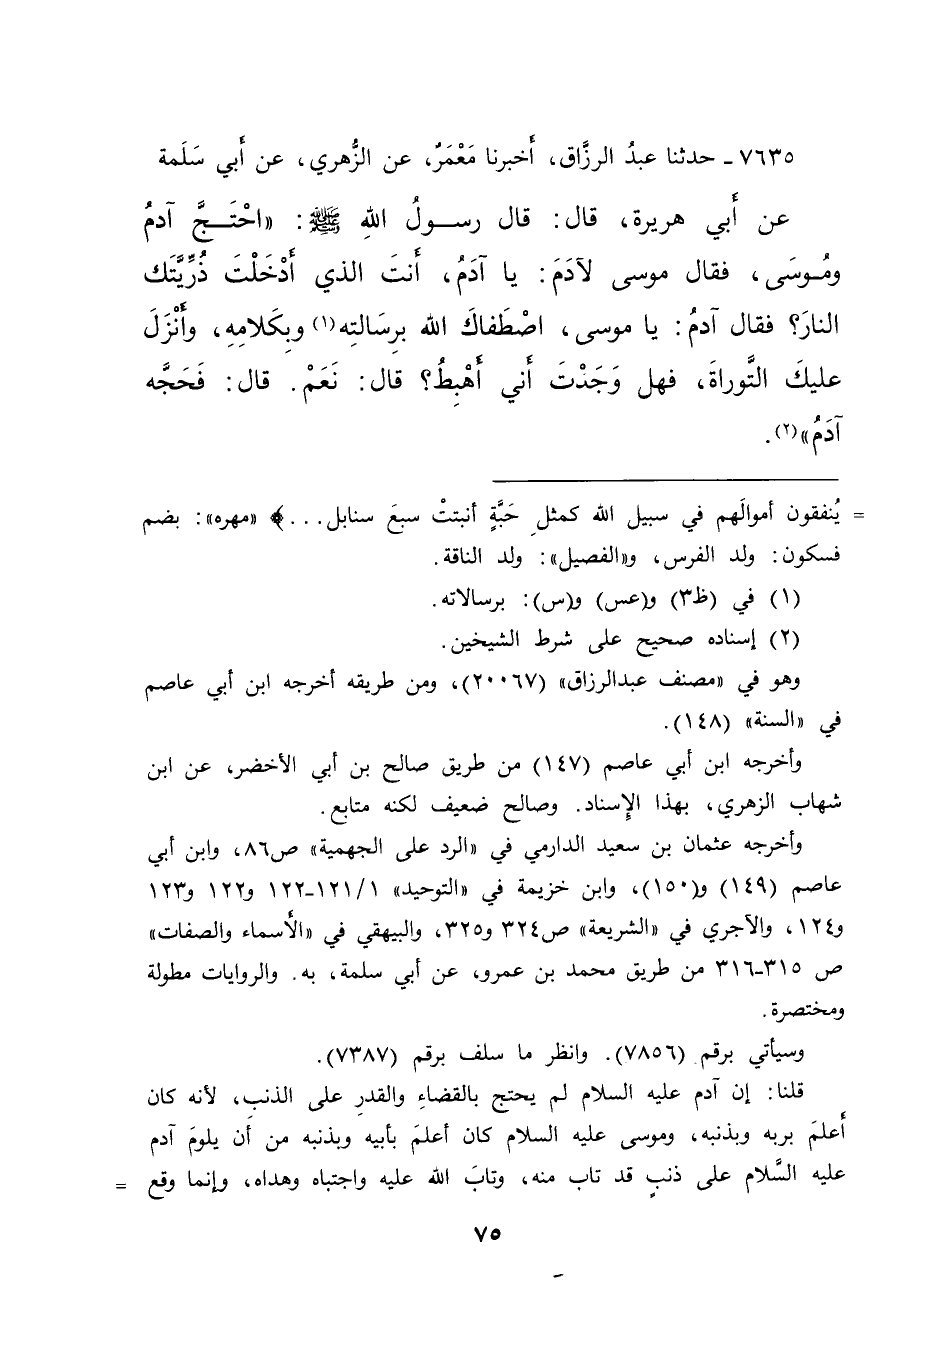 ٧٦٣٥ ـ حدثنا عبدُ الرزَّاق، أَخبرنا مَعْمَرٌ، عن الزُّهري، عن أَبي سَلَمة
عن أَبي هريرة، قال: قال رسولُ اللهِ ﷺ: «احْتَجَّ آدمُ
ومُوسَى، فقال موسى لآدَمَ: يا آدَمُ، أَنتَ الذي أَدْخَلْتَ ذُرِّيَّتَك
النارَ؟ فقال آدمُ: يا موسى، اصْطَفاكَ الله برِسَالتِه(١) وبِكَلامِهِ، وأَنْزَلَ
عليكَ التَّوراةَ، فهل وَجَدْتَ أَني أَهْبِطُ؟ قال: نَعَمْ. قال: فَحَجَّه
آدَمُ»(٢).
= يُنفقون أموالَهم في سبيل الله كمثلِ حَبَّةٍ أنبتتْ سبعَ سنابل...﴾ «مهره»: بضم
فسكون: ولد الفرس، و«الفصيل»: ولد الناقة.
(١) في (ظ٣) و(عس) و(س): برسالاته.
(٢) إسناده صحيح على شرط الشيخين.
وهو في «مصنف عبدالرزاق» (٢٠٠٦٧)، ومن طريقه أخرجه ابن أبي عاصم
في «السنة» (١٤٨).
وأخرجه ابن أبي عاصم (١٤٧) من طريق صالح بن أبي الأخضر، عن ابن
شهاب الزهري، بهذا الإسناد. وصالح ضعيف لكنه متابع.
وأخرجه عثمان بن سعيد الدارمي في «الرد على الجهمية» ص٨٦، وابن أبي
عاصم (١٤٩) و(١٥٠)، وابن خزيمة في «التوحيد» ١/١٢١-١٢٢ و١٢٢ و١٢٣
و١٢٤، والآجري في «الشريعة» ص٣٢٤ و٣٢٥، والبيهقي في «الأسماء والصفات»
ص ٣١٥-٣١٦ من طريق محمد بن عمرو، عن أبي سلمة، به. والروايات مطولة
ومختصرة.
وسيأتي برقم (٧٨٥٦). وانظر ما سلف برقم (٧٣٨٧).
قلنا: إن آدم عليه السلام لم يحتج بالقضاءِ والقدرِ على الذنبِ، لأنه كان
أَعلمَ بربه وبذنبه، وموسى عليه السلام كان أعلمَ بأبيه وبذنبه من أن يلومَ آدم
عليه السَّلام على ذنبٍ قد تاب منه، وتابَ الله عليه واجتباه وهداه، وإنما وقع =
٧٥